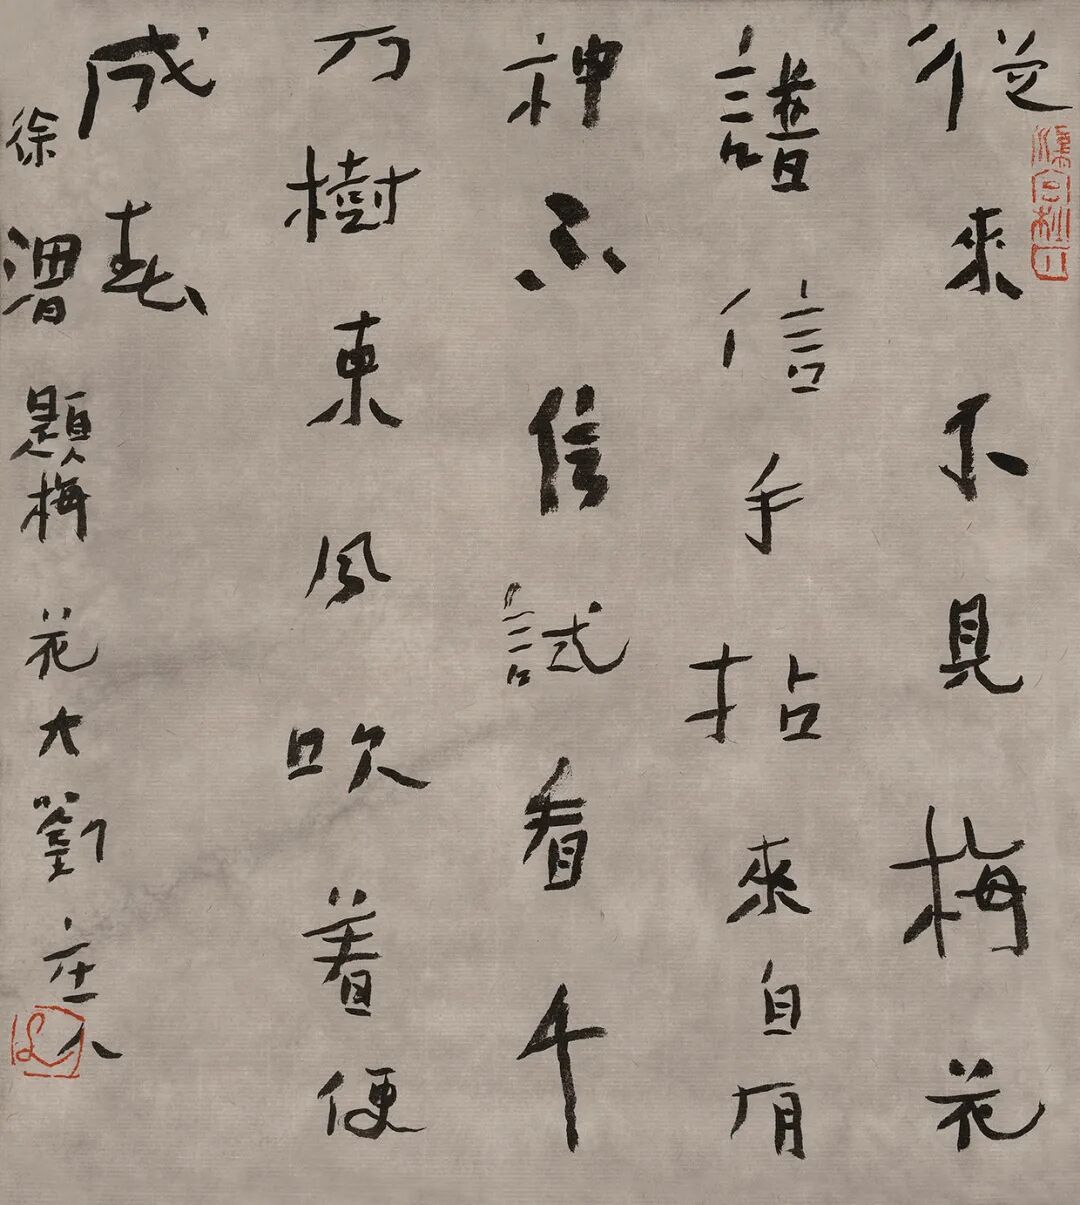 從來不見梅花
譜信手拈來自有
神不信試看千
万樹東風吹着便
成春
徐渭題梅花大劉庄人